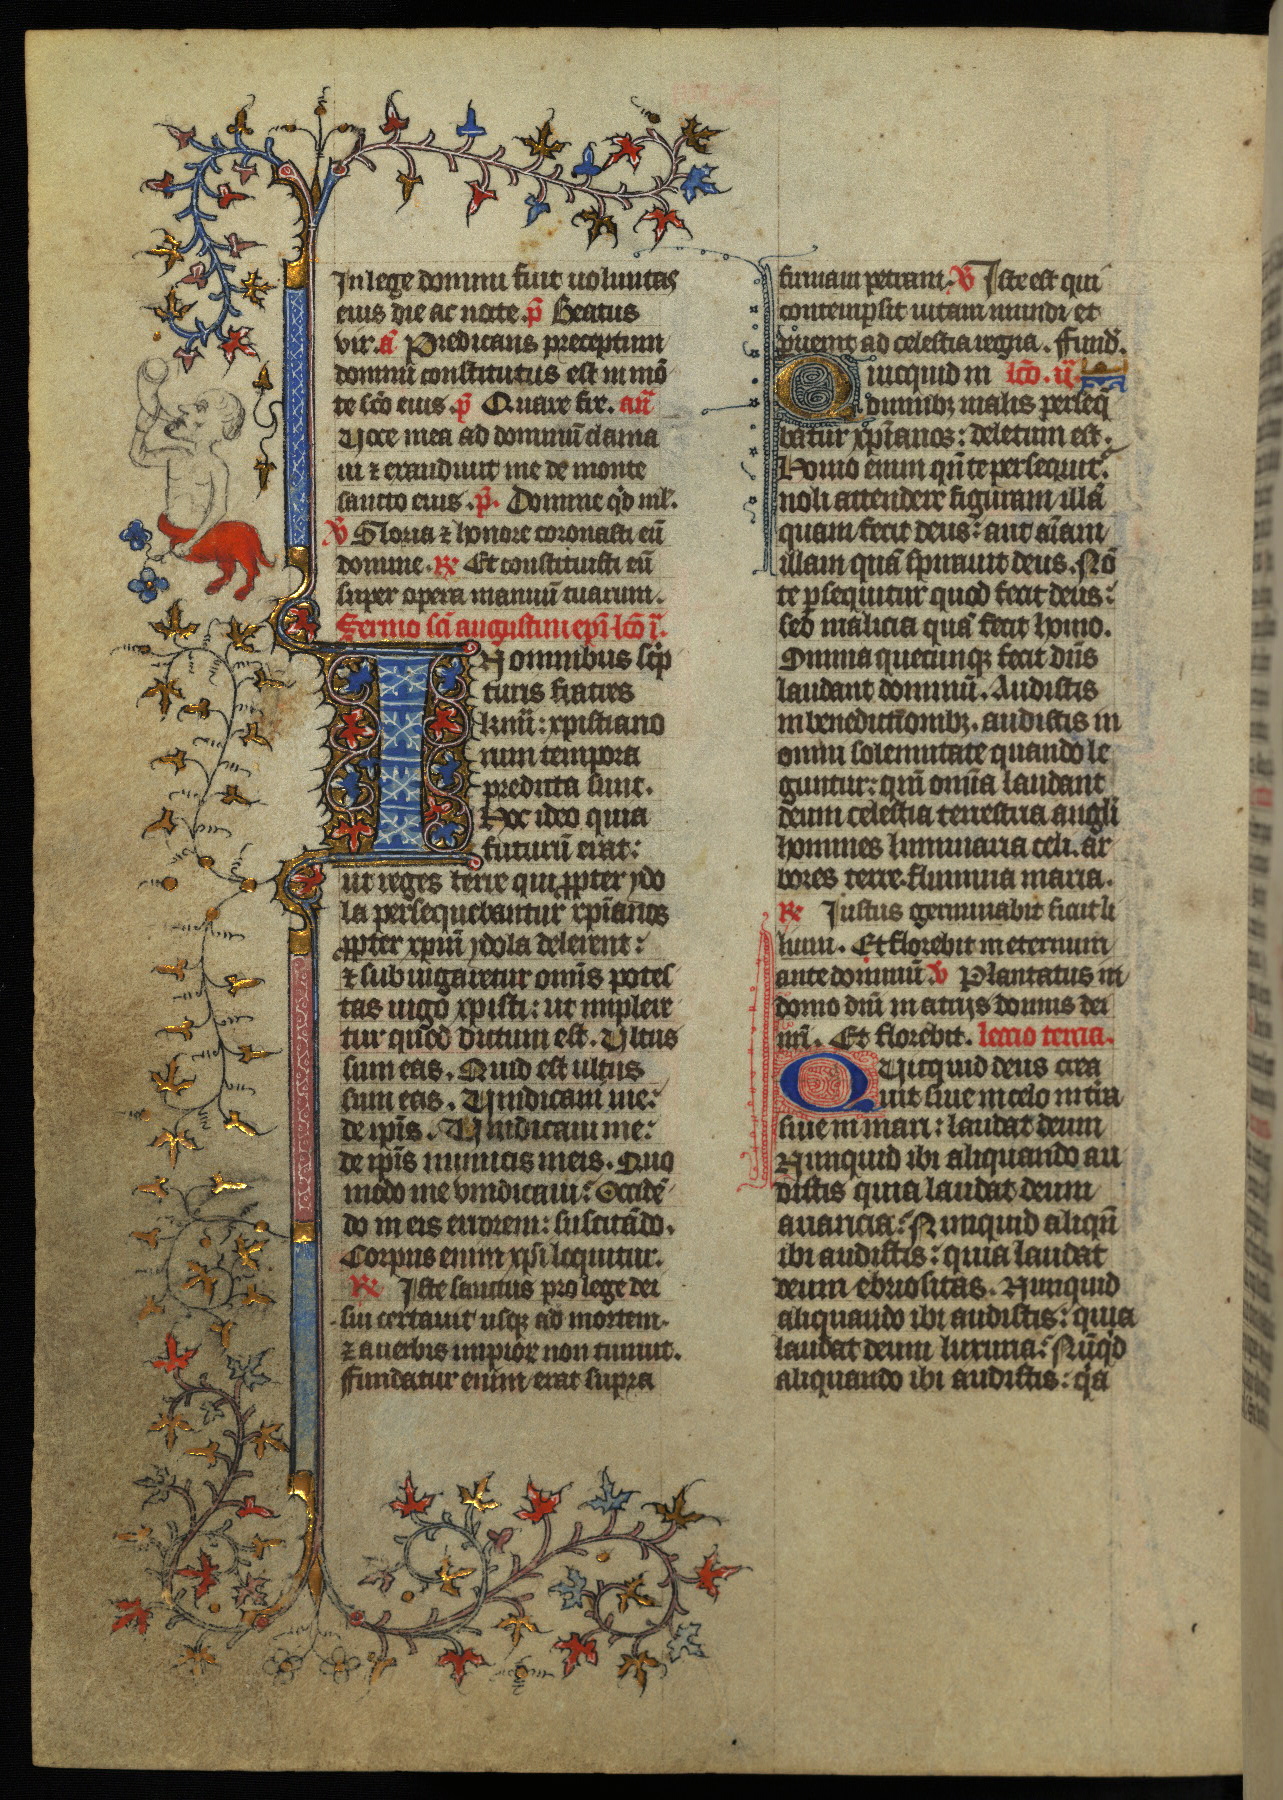 In lege domini fuit uoluntas
eius die ac nocte. p̄ Beatus
vir. a᷈ Predicans preceptum
dominū constitutus est in mō
te sc̄o eius. p̄ Quare fre. an̄
Uoce mea ad dominū clama
ui ⁊ exaudiuit me de monte
sancto eius. p̄. Domine qͥd ml̓.
℣ Gloria ⁊ honore coronasti eū
domine. ℟ Et constituisti eū
super opera manuū tuarum.
Sermo sc̄i augustini ep̄i. lc̄o .ī.
IN omnibus sc̄p
turis fratres
kr̄mi: xpistiano
rum tempora
predicta sunt.
Hoc ideo quia
futurū erat:
ut reges terre qui ꝓpter ydo
la persequebantur xp̄ianos
ꝓpter xp̄m ydola delerent:
⁊ subiugaretur omīs potes
tas iugo xpisti: ut implere
tur quod dictum est. Ultus
sum eas. Quid est ultus
sum eas. Uindicaui me:
de ip̄is. Uindicaui me:
de ip̄is inimicis meis. Quo
modo me vindicaui: Occidē
do in eis errorem: suscitādo.
Corpus enim xp̄i sequitur.
℟ Iste sanctus pro lege dei
sui certauit usqꝫ ad mortem.
⁊ a uerbis impioꝝ non timuit.
Fundatur enim erat supra
firmam petram. ℣ Iste est qui
contempsit uitam mundi et
ꝑuenit ad celestia regna. Fund̓.
Quicquid in lc̄o .ij.
dictinibꝫ malis perseq̄
batur xp̄ianos: deletum est.
Homo enim qn̄ te persequit᷑.
noli attendere figuram illā
quam fecit deus: aut aīam
illam quā spirauit deus. Nō
te ꝑsequitur quod fecit deus:
sed malicia quā fecit homo.
Omnia quecunqꝫ fecit dn̄s
laudant dominū. Audistis
in benedictōmbꝫ. audistis in
omni solemnitate quando le
guntur: qm̄ om̄ia laudant
deum celestia terrestria angli
homines luminaria celi. ar
bores terre. flumina maria.
℟ Iustus germinabit sicut li
lium. Et florebit in eternum
ante dominū. ℣ Plantatus in
domo dn̄i in atrijs domus dei
nr̄i. Et florebit. lectio tercia.
Quicquid deus crea
uit siue in celo in t̄ra
siue in mari: laudat deum
Nunquid ibi aliquando au
distis quia laudat deum
auaricia: Nunquid aliqn̄
ibi audistis: quia laudat
deum ebriositas. Nunquid
aliquando ibi audistis: quia
laudat deum luxuria: Nūqͥd
aliquando ibi audistis: qͥa